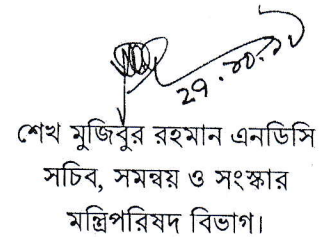 ২৭.১০.১৮
শেখ মুজিবুর রহমান এনডিসি
সচিব, সমন্বয় ও সংস্কার
মন্ত্রিপরিষদ বিভাগ।